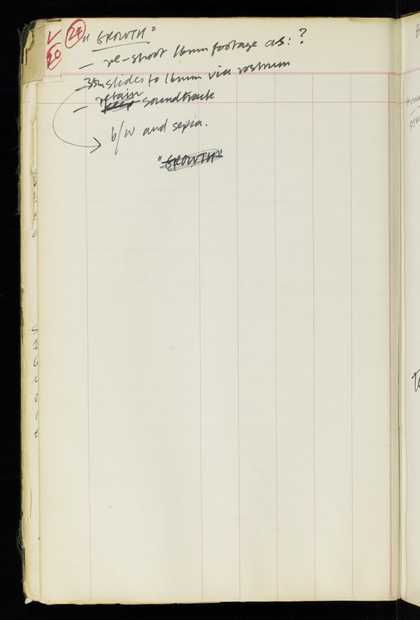 V 24 "GROWTH"
20
— re-shoot 16mm footage as: ?
35m slides to 16mm via rostrum
— retain soundtrack
b/w and sepia.
"GROWTH"